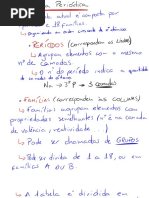 a Periódica
atual é composta por
18 famílias.
PERÍODOS (correspondem às linhas)
Agrupam elementos com o mesmo
nº de camadas.
O nº do período indica a quantidade
de camadas no átomo.
Na → 3º P → 3 camadas
FAMÍLIAS (correspondem às colunas)
Família agrupam elementos com
propriedades semelhantes (nº é na camada
de valência, reatividade...)
Pode ser chamadas de GRUPOS
de 1 a 18, ou em
famílias A ou B.
A tabela é dividida em